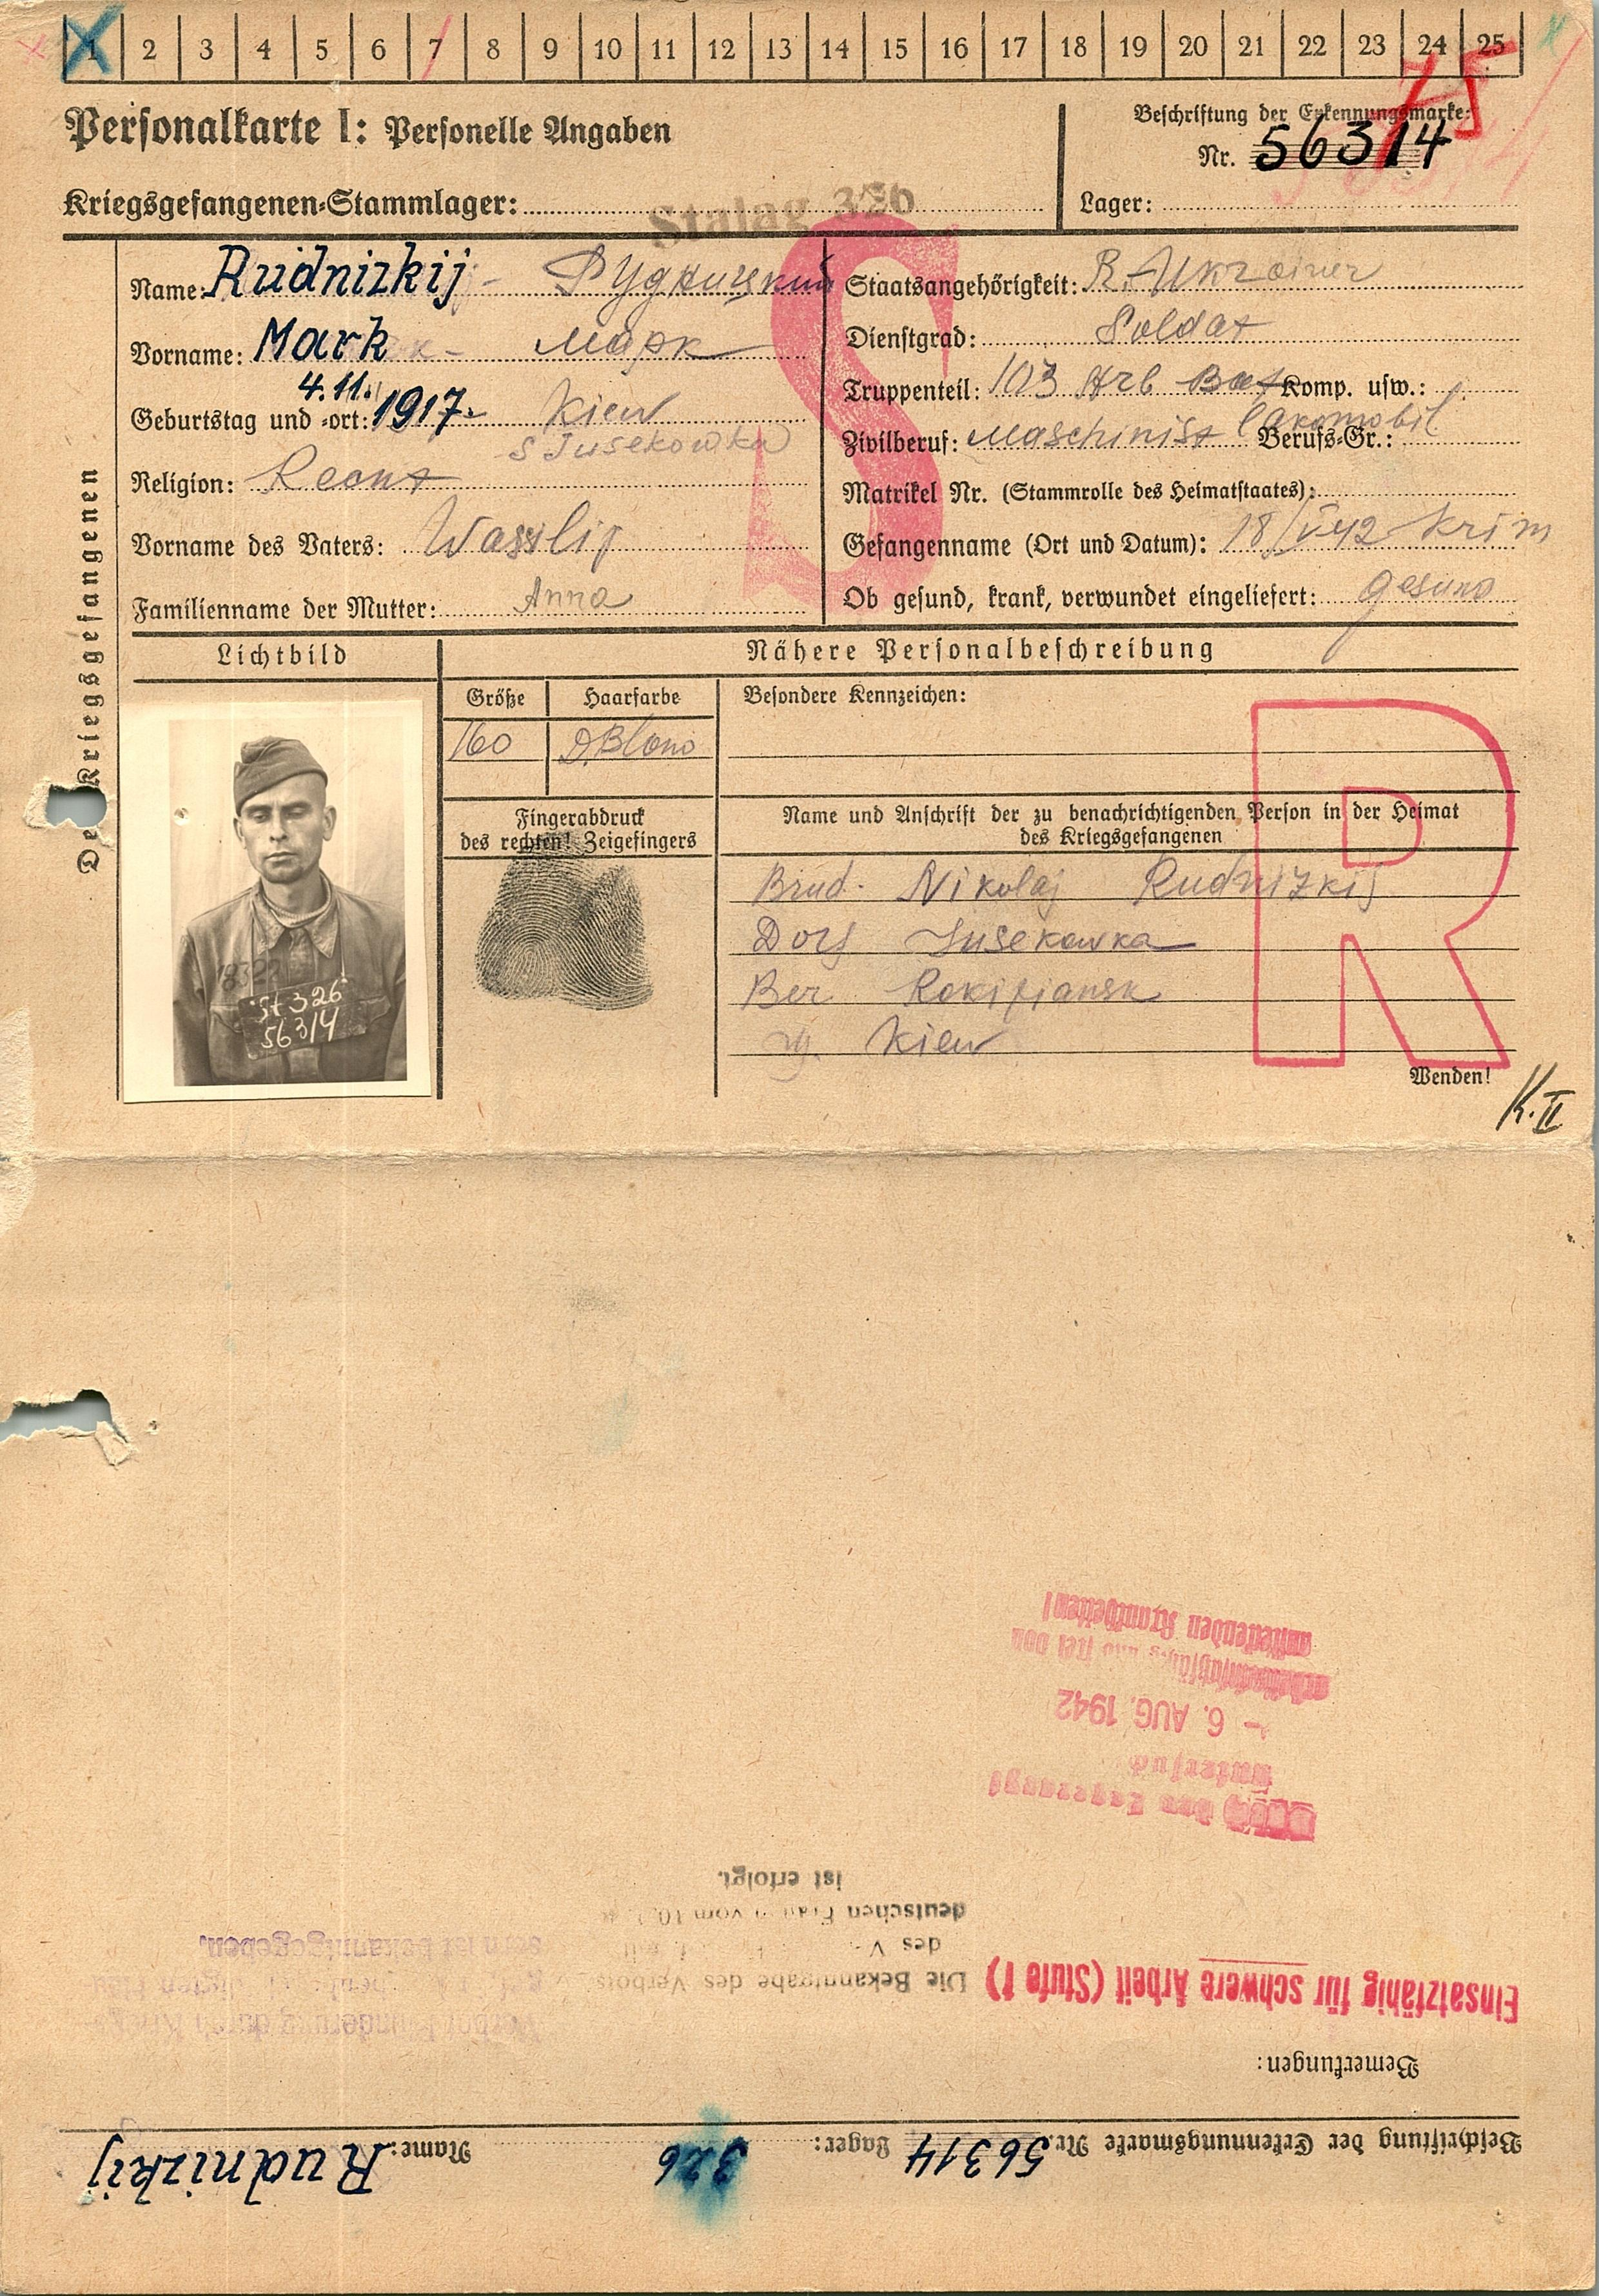 1 2 3 4 5 6 7 8 9 10 11 12 13 14 15 16 17 18 19 20 21 22 23 24 25
75
Personalkarte I: Personelle Angaben
Beschriftung der Erkennungsmarke:
Nr. 56314
Kriegsgefangenen-Stammlager: Stalag 326
Lager:
Des Kriegsgefangenen
Name: Rudnizkij - Рудницкий
Vorname: Mark - Марк
4.11.
Geburtstag und -ort: 1917. Kiew
S Jusekowka
Religion:
Vorname des Vaters: Wasslij
Familienname der Mutter: Anna
S
Staatsangehörigkeit: R. Ukrainer
Dienstgrad: Soldat
Truppenteil: 103 Arb Bat Komp. usw.:
Zivilberuf: Maschinist Lokomobil Berufs-Gr.:
Matrikel Nr. (Stammrolle des Heimatstaates):
Gefangenname (Ort und Datum): 18/V 42 Krim
Ob gesund, krank, verwundet eingeliefert: gesund
Lichtbild
St 326
56314
Nähere Personalbeschreibung
Größe Haarfarbe
160 D. Blond
Besondere Kennzeichen:
Fingerabdruck
des rechten! Zeigefingers
Name und Anschrift der zu benachrichtigenden Person in der Heimat
des Kriegsgefangenen
Brud. Nikolaj Rudnizkij
Dorf Jusekowka
Ber
Kiew
R
Wenden!
K. II
Beschriftung der Erkennungsmarke Nr. 56314 Lager: 326 Name: Rudnizkij
Bemerkungen:
Einsatzfähig für schwere Arbeit (Stufe 1)
Die Bekanntgabe des Verbots
des
deutschen Frauen vom 10.
ist erfolgt.
ist bekanntgegeben.
Durch den Lagerarzt
untersucht
- 6. AUG. 1942
und frei von
ansteckenden Krankheiten!